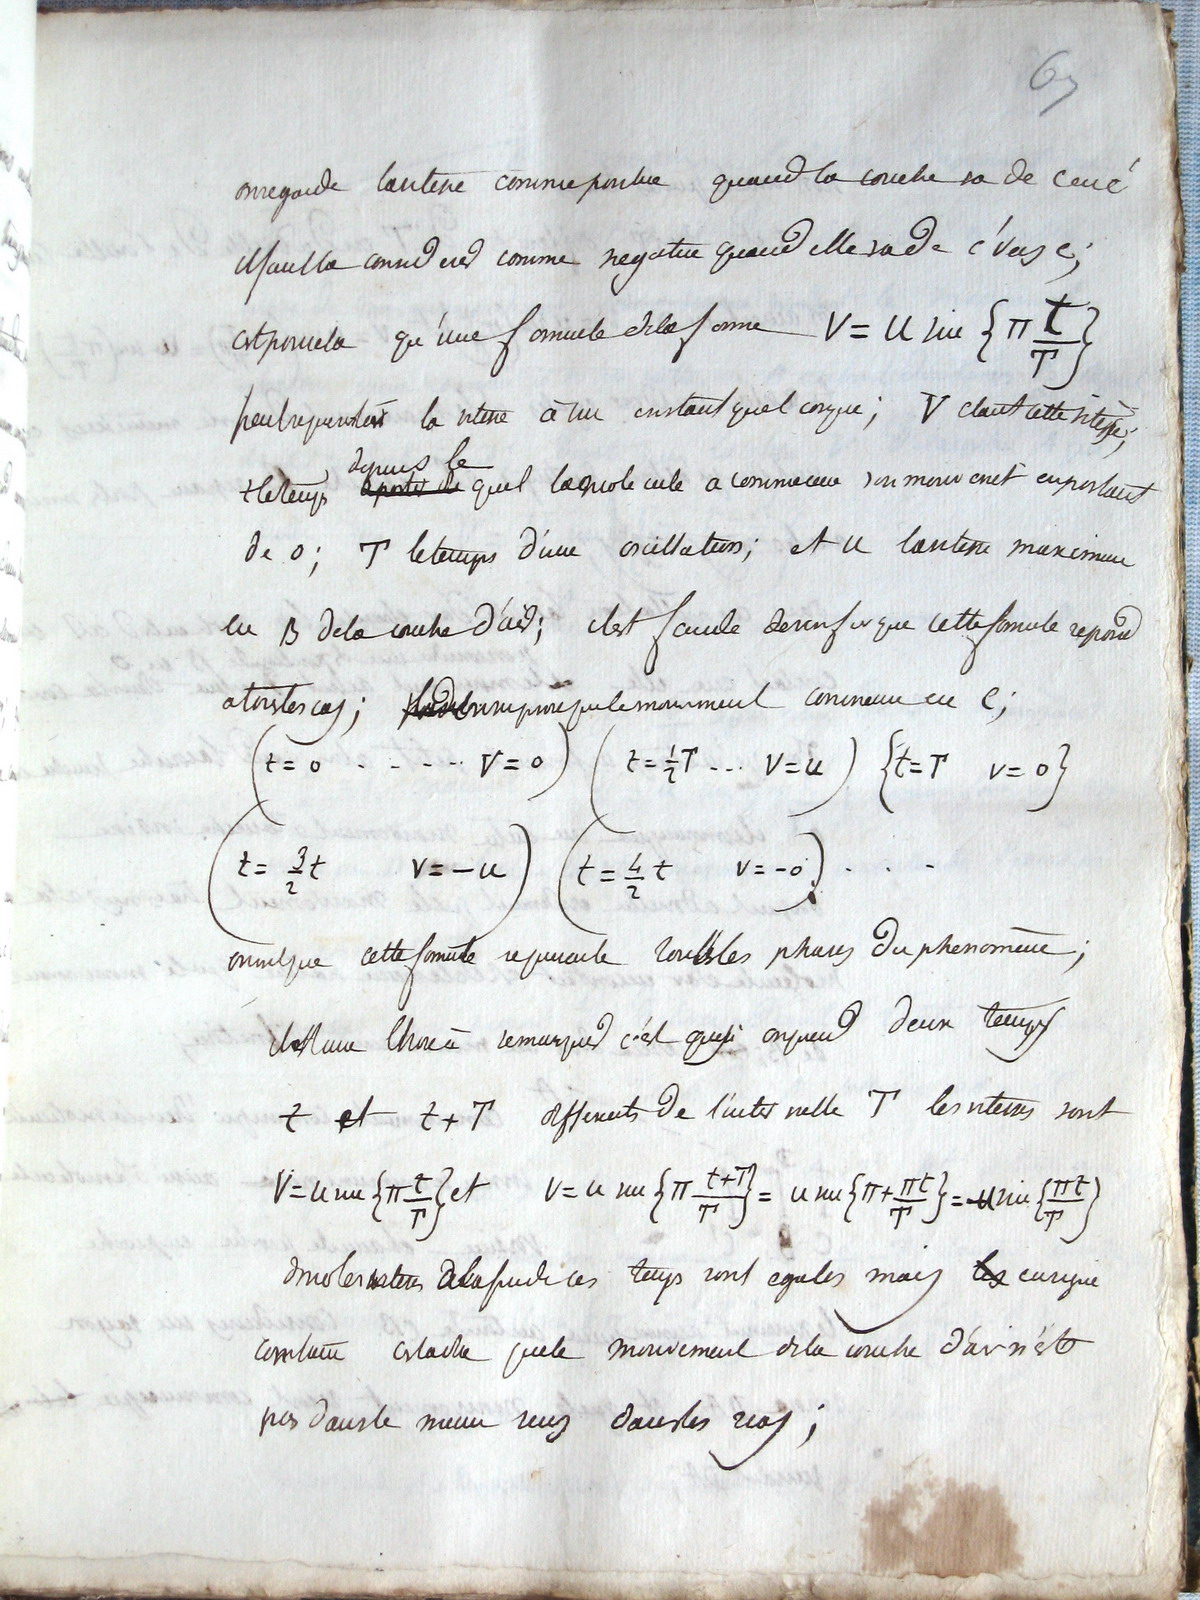 67
on regarde la vitesse comme positive quand la couche va de c en c'
il faut la considerer comme negative quand elle va de c' vers c;
c'est pour cela qu'une formule de la forme V = u sin {π t/T}
peut representer la vitesse à un instant quelconque; V etant cette vitesse;
t le temps depuis le quel la molecule a commencé son mouvement en partant
de 0; T le temps d'une oscillation; et u la vitesse maximum
en B de la couche d'air; il est facile de voir que cette formule repond
a tous les cas; que le mouvement commence en C;
(t = 0 . . . . . V = 0) (t = 1/2 T ... V = u) {t = T v = 0}
(t = 3/2 t v = - u) (t = 4/2 t v = - 0) . . . .
on voit que cette formule represente toutes les phases du phenomène;
il est une chose à remarquer c'est que si on prend deux temps
t et t + T differents de l'intervalle T les vitesses sont
V = u sin {π t/T} et v = u sin {π t+T/T} = u sin {π + πt/T} = - u sin {πt/T}
donc les vitesses de ces temps sont egales mais les en signe
contraire c'est a dire que le mouvement de la couche d'air n'est
pas dans le meme sens dans les cas;